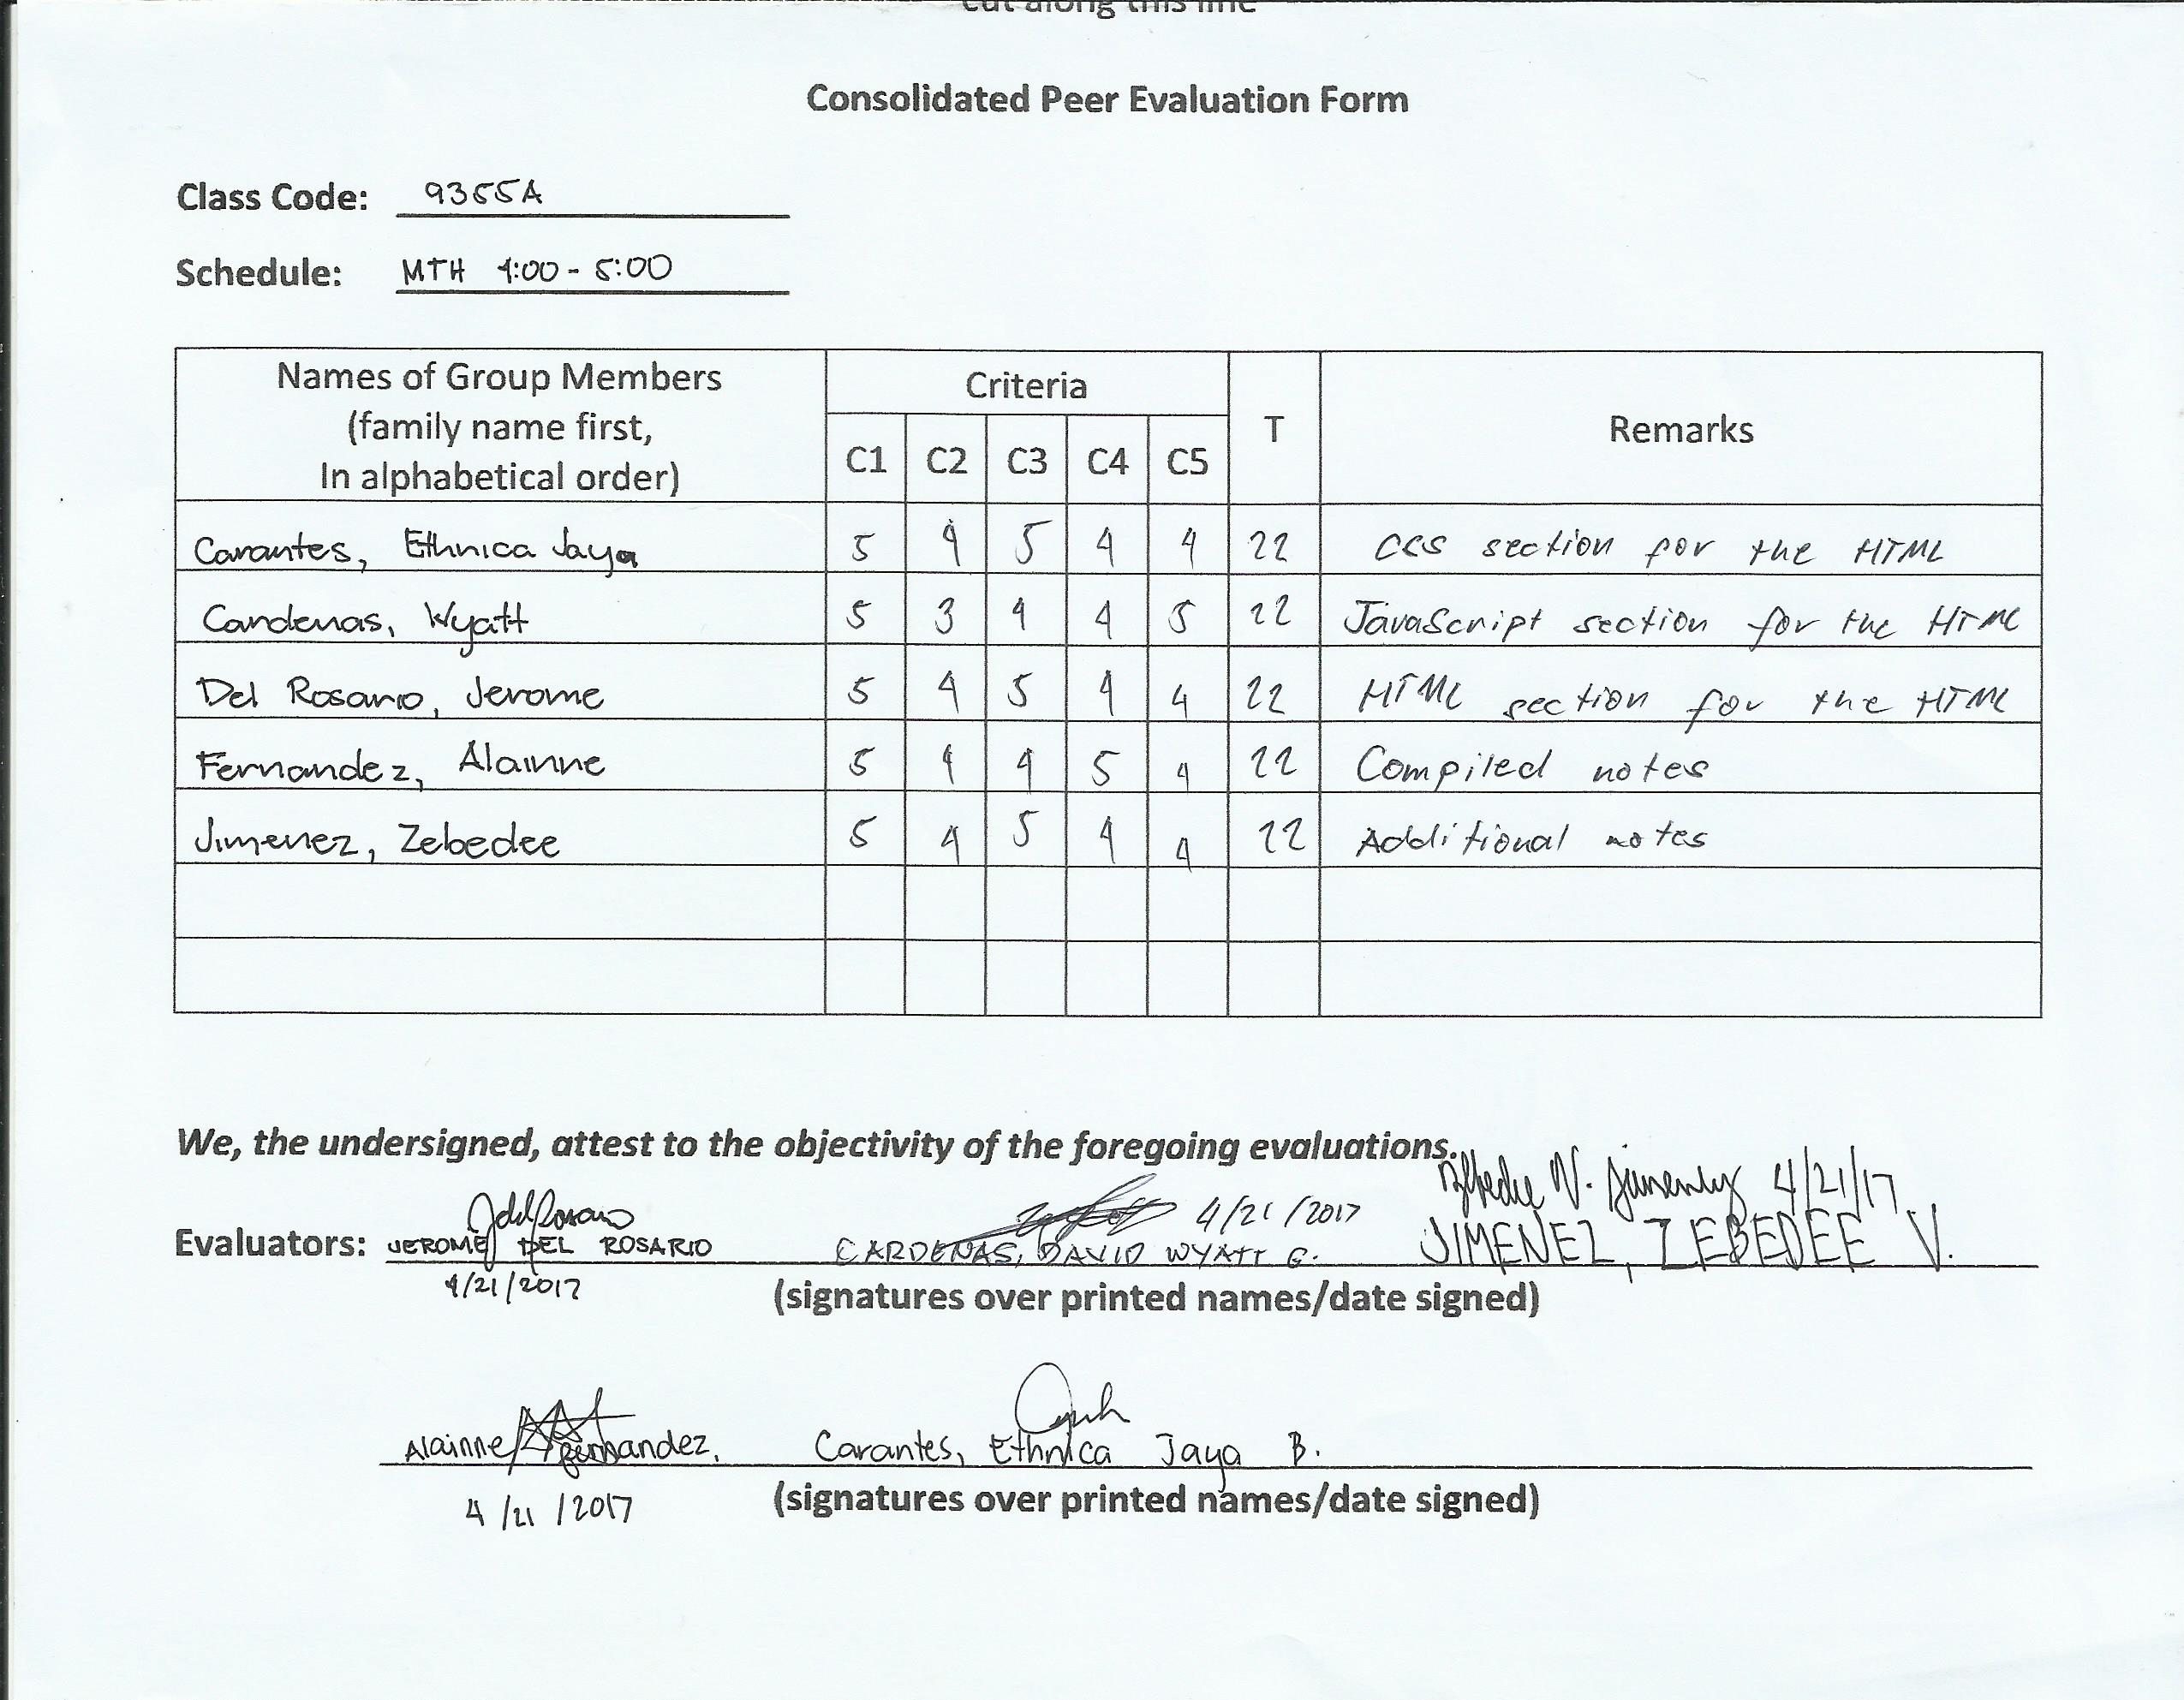 cut along this line
Consolidated Peer Evaluation Form
Class Code: 9355A
Schedule: MTH 4:00 - 5:00
Names of Group Members
(family name first,
In alphabetical order)
Criteria
T
Remarks
C1 C2 C3 C4 C5
Carantes, Ethnica Jaya 5 4 5 4 4 22 CCS section for the HTML
Cardenas, Wyatt 5 3 4 4 5 22 JavaScript section for the HTML
Del Rosario, Jerome 5 4 5 4 4 22 HTML section for the HTML
Fernandez, Alainne 5 4 4 5 4 22 Compiled notes
Jimenez, Zebedee 5 4 5 4 4 22 Additional notes
We, the undersigned, attest to the objectivity of the foregoing evaluations.
4/21/2017 Zebedee V. Jimenez 4/21/17
Evaluators: JEROME DEL ROSARIO CARDENAS, DAVID WYATT G. JIMENEZ, ZEBEDEE V.
4/21/2017
(signatures over printed names/date signed)
Alainne Fernandez. Carantes, Ethnica Jaya B.
4/21/2017
(signatures over printed names/date signed)